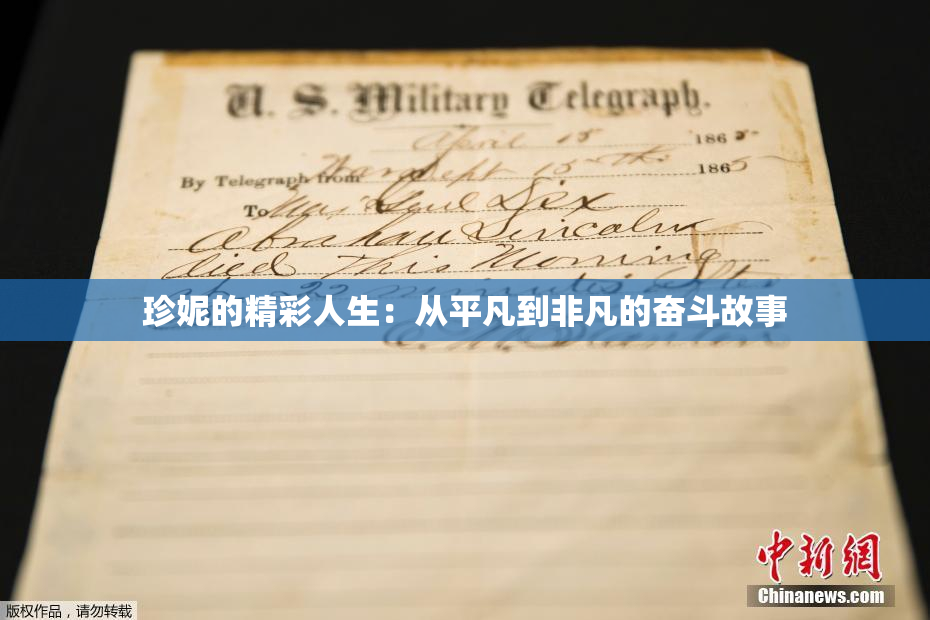 U. S. Military Telegraph.
April 15 1865
By Telegraph from War Dept 15th 1865
To Maj Genl Dix
Abraham Lincoln
died This Morning
at 22 minutes after
珍妮的精彩人生：从平凡到非凡的奋斗故事
E. M. Stanton
中新網
Chinanews.com
版权作品，请勿转载